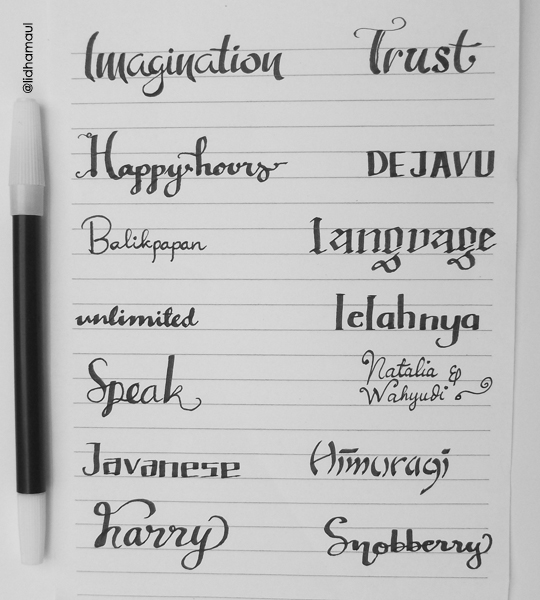 @lidhamaul
Imagination
Trust
Happy hours
DEJAVU
Balikpapan
Language
unlimited
lelahnya
Speak
Natalia &
Wahyudi
Javanese
Himuragi
harry
Snobberry